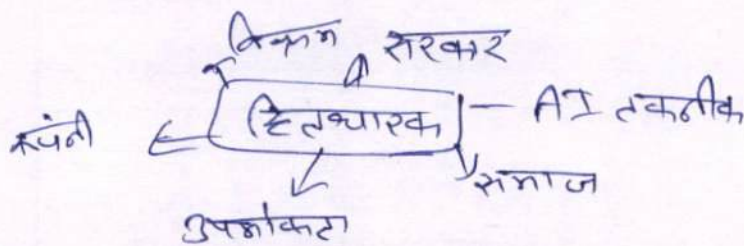 विक्रम सरकार
कंपनी हितधारक - AI तकनीक
समाज
उपभोक्ता